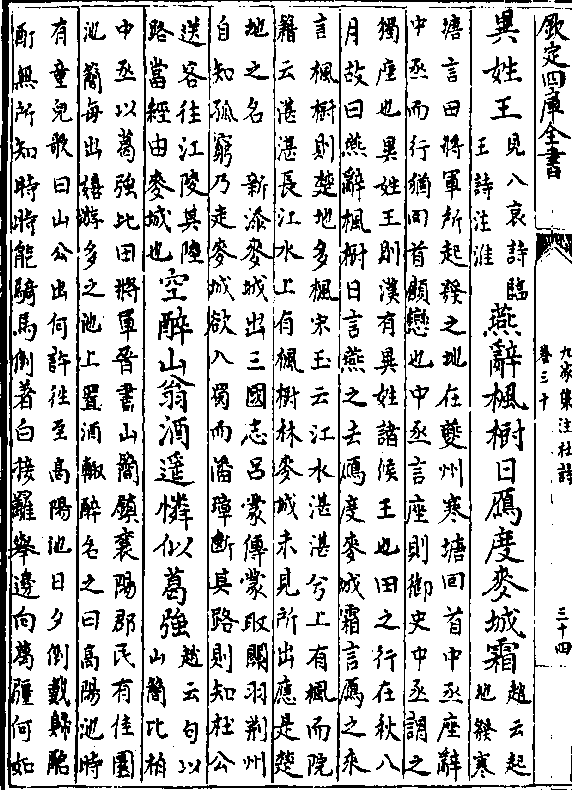 欽定四庫全書
九家集注杜詩
卷三十
三十四
異姓王見八哀詩臨
王詩注淮燕辭楓樹日鴈度麥城霜趙云起
地發寒
塘言田將軍所起發之地在夔州寒塘回首中丞座辭
中丞而行猶回首顧戀也中丞言座則御史中丞謂之
獨座也異姓王則漢有異姓諸侯王也田之行在秋八
月故曰燕辭楓樹日言燕之去鴈度麥城霜言鴈之來
言楓樹則楚地多楓宋玉云江水湛湛兮上有楓而阮
籍云湛湛長江水上有楓樹林麥城未見所出應是楚
地之名 新添麥城出三國志吕蒙傳蒙取關羽荆州
自知孤窮乃走麥城欲入蜀而潘璋斷其路則知杜公
送客往江陵其陸
路當經由麥城也空醉山翁酒遥憐似葛強趙云句以
山簡比栢
中丞以葛強比田將軍晉書山簡鎮襄陽郡民有佳園
池簡每出嬉游多之池上置酒輙醉名之曰高陽池時
有童兒歌曰山公出何許往至高陽池日夕倒載歸酩
酊無所知時時能騎馬倒著白接䍦舉邊向葛疆何如